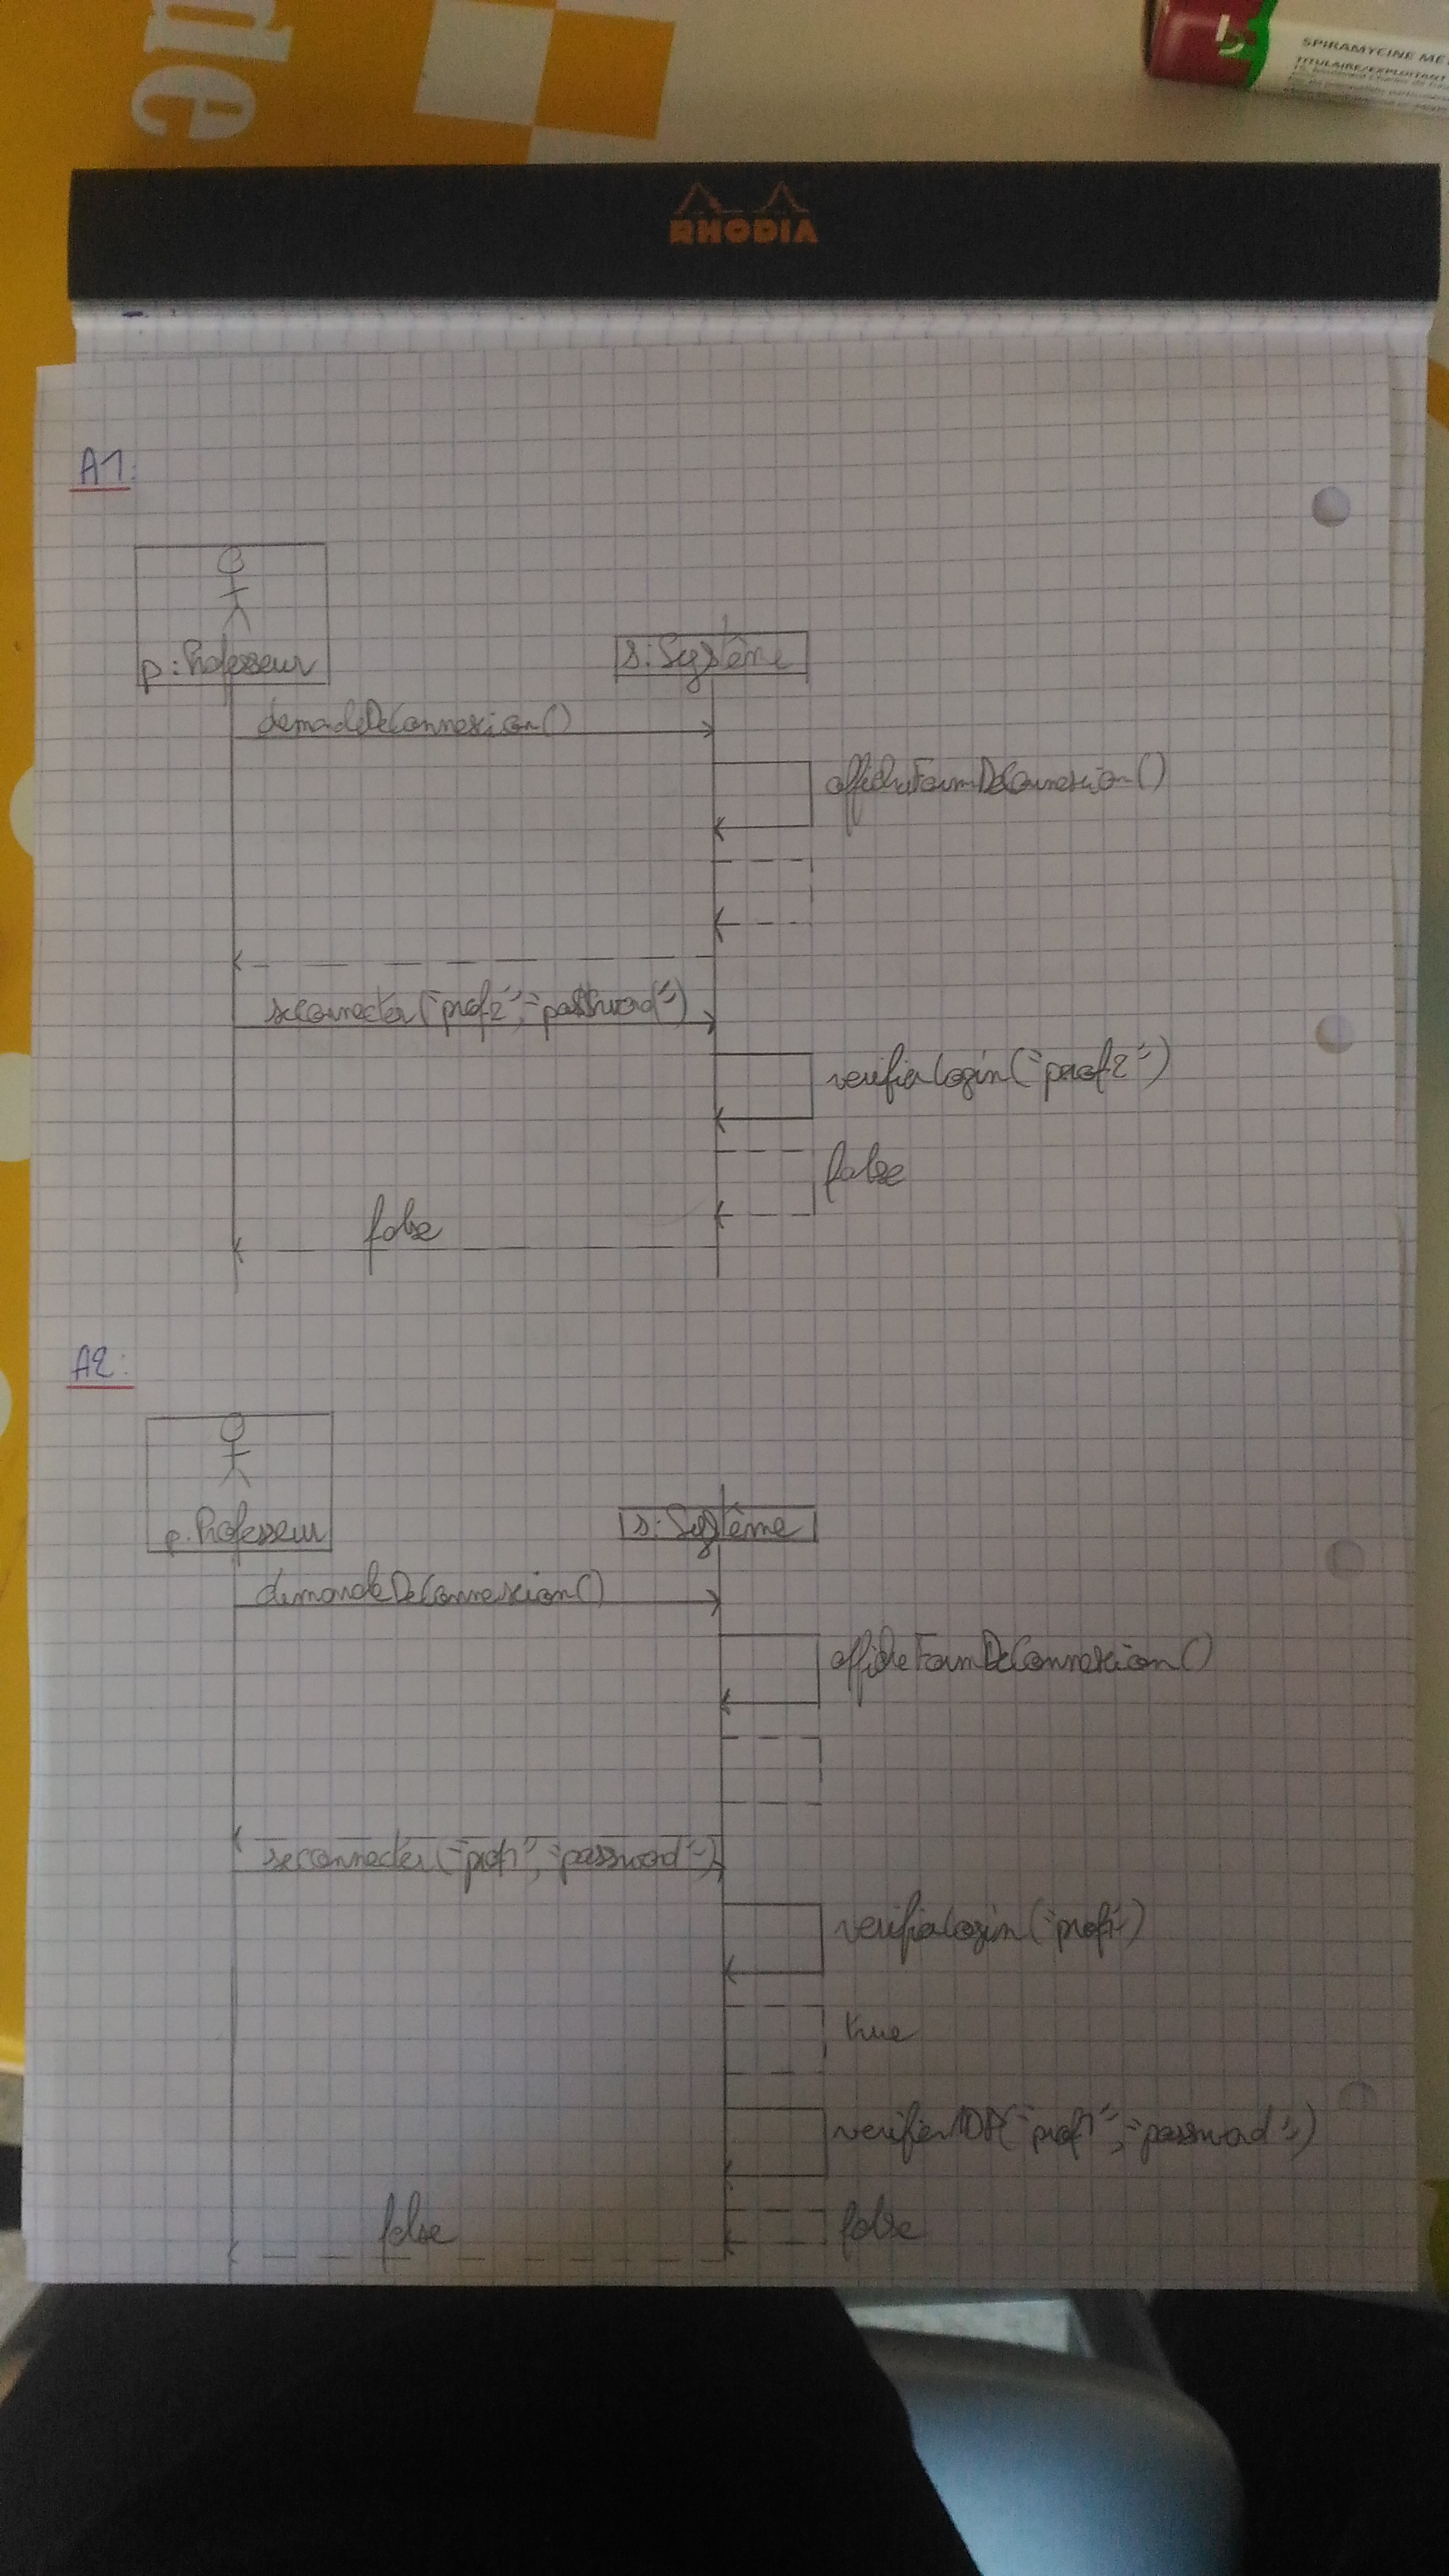 de
SPIRAMYCINE MÉ
TITULAIRE/EXPLOITANT
RHODIA
A1:
p:Professeur
s:Système
demandeDeConnexion()
afficherFormDeConnexion()
seconnecter("prof2", "password")
verifierLogin("prof2")
false
false
A2:
p:Professeur
s:Système
demandeDeConnexion()
afficheFormDeConnexion()
seconnecter("prof1", "password")
verifierLogin("prof1")
true
verifierMDP("prof1", "password")
false
false